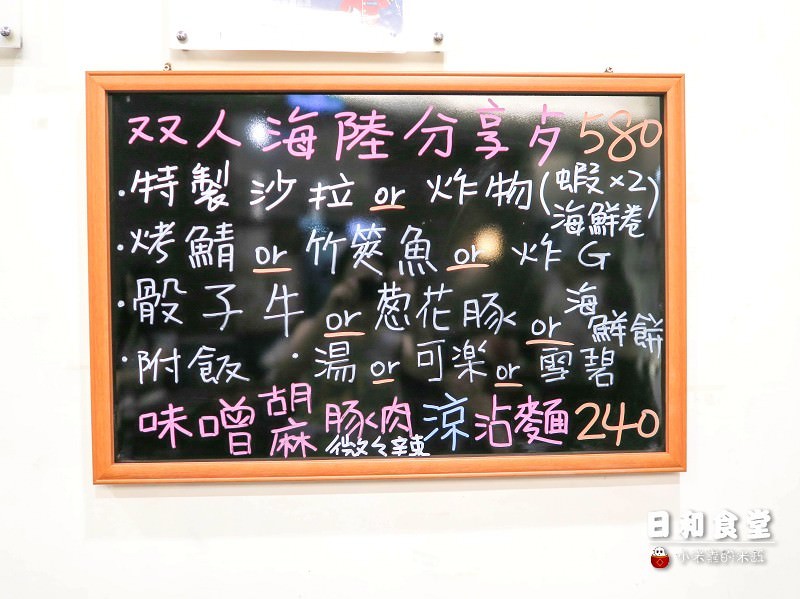 双人海陸分享歺580
·特製沙拉 or 炸物(蝦×2 海鮮卷)
·烤鯖 or 竹筴魚 or 炸G
·骰子牛 or 蔥花豚 or 海鮮餅
·附飯 ·湯 or 可樂 or 雪碧
味噌胡麻豚肉涼沾麵240
微々辣
日和食堂
小米蟲的米缸